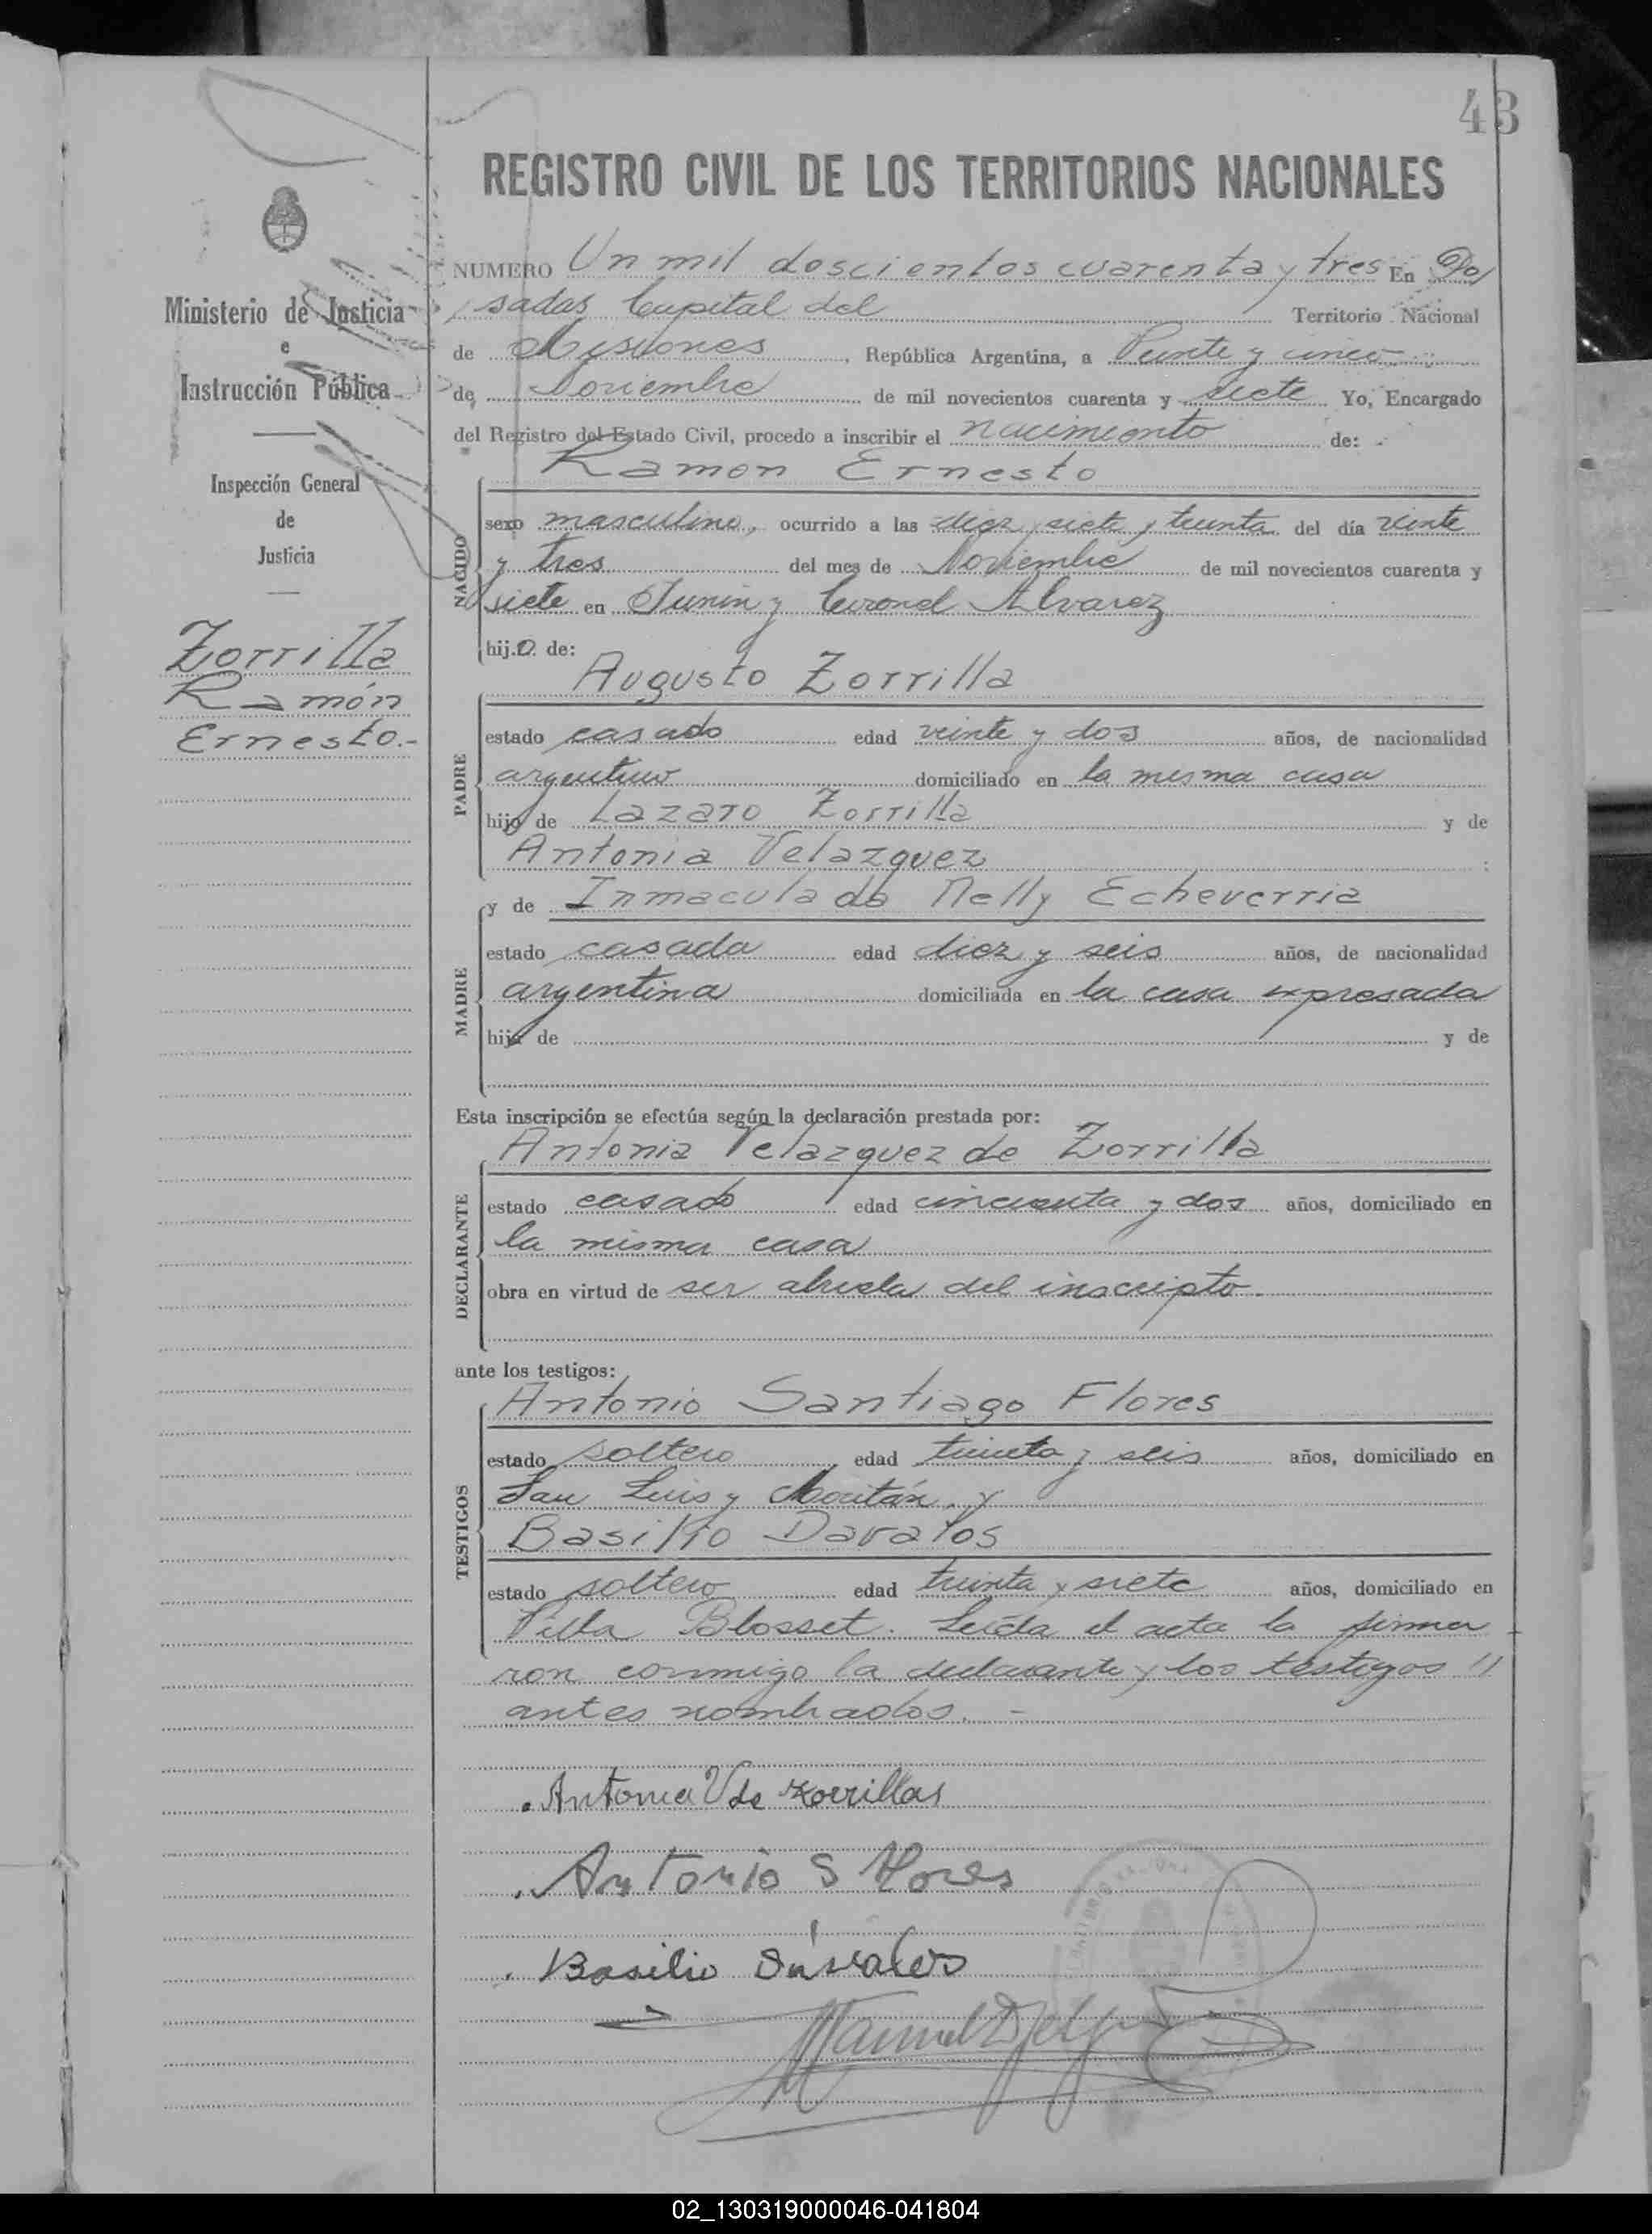 43
REGISTRO CIVIL DE LOS TERRITORIOS NACIONALES
NUMERO Un mil doscientos cuarenta y tres En Po/
/sadas Capital del Territorio Nacional
de Misiones, República Argentina, a Veinte y cinco
de Noviembre de mil novecientos cuarenta y siete Yo, Encargado
del Registro del Estado Civil, procedo a inscribir el nacimiento de:
Ramon Ernesto
sexo masculino, ocurrido a las diez y siete y treinta del día veinte
y tres del mes de Noviembre de mil novecientos cuarenta y
siete en Junin y Coronel Alvarez
hijo de:
Augusto Zorrilla
estado casado edad veinte y dos años, de nacionalidad
argentino domiciliado en la misma casa
hijo de Lazaro Zorrilla y de
Antonia Velazquez
y de Inmaculada Nelly Echeverria
estado casada edad diez y seis años, de nacionalidad
argentina domiciliada en la casa expresada
hija de y de
Esta inscripción se efectúa según la declaración prestada por:
Antonia Velazquez de Zorrilla
estado casado edad cincuenta y dos años, domiciliado en
la misma casa
obra en virtud de ser abuela del inscripto.
ante los testigos:
Antonio Santiago Flores
estado soltero edad treinta y seis años, domiciliado en
San Luis y Moritán. y
Basilio Davalos
estado soltero edad treinta y siete años, domiciliado en
Villa Blosset. Leída el acta la firma
ron conmigo la declarante y los testigos //
antes nombrados. -
Antonia V de Zorrillas
Antonio S Flores
Basilio Dávalos
NACIDO
PADRE
MADRE
DECLARANTE
TESTIGOS
Ministerio de Justicia
e
Instrucción Pública
Inspección General
de
Justicia
Zorrilla
Ramón
Ernesto.-
02_130319000046-041804